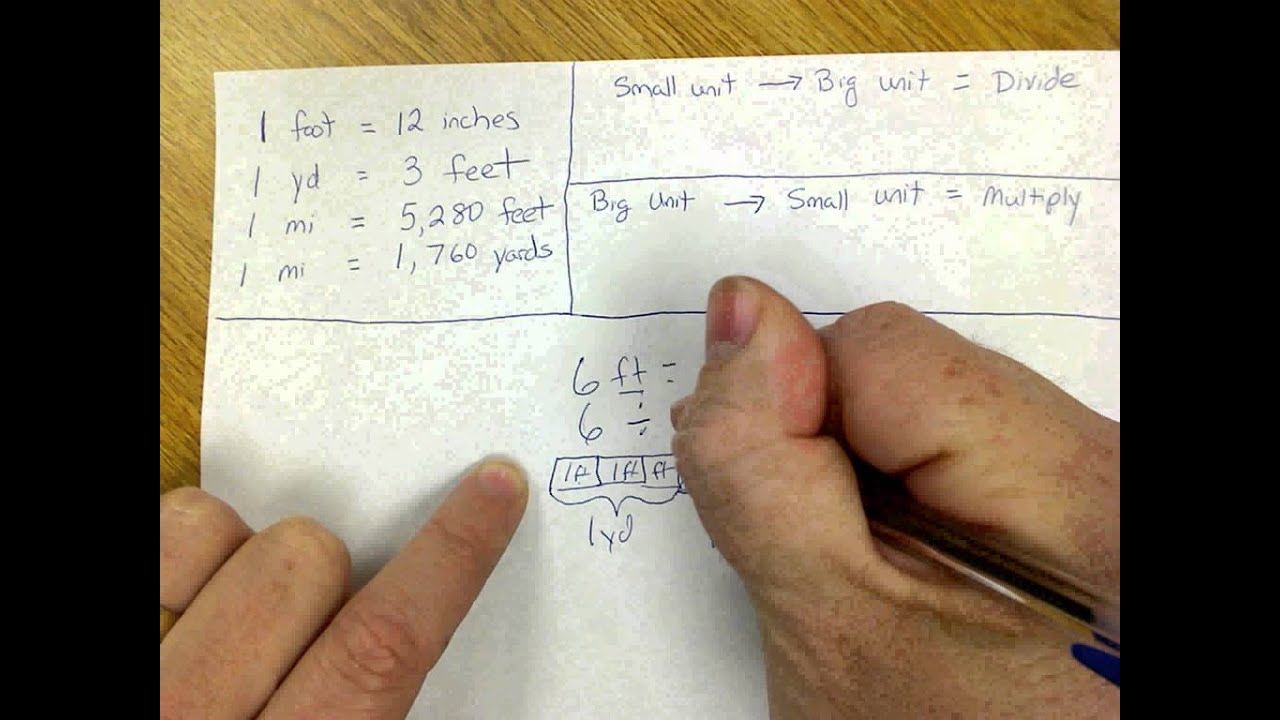 1 foot = 12 inches
1 yd = 3 feet
1 mi = 5,280 feet
1 mi = 1,760 yards
Small unit → Big unit = Divide
Big Unit → Small unit = Multiply
6 ft =
6 ÷
1ft 1ft ft
1yd